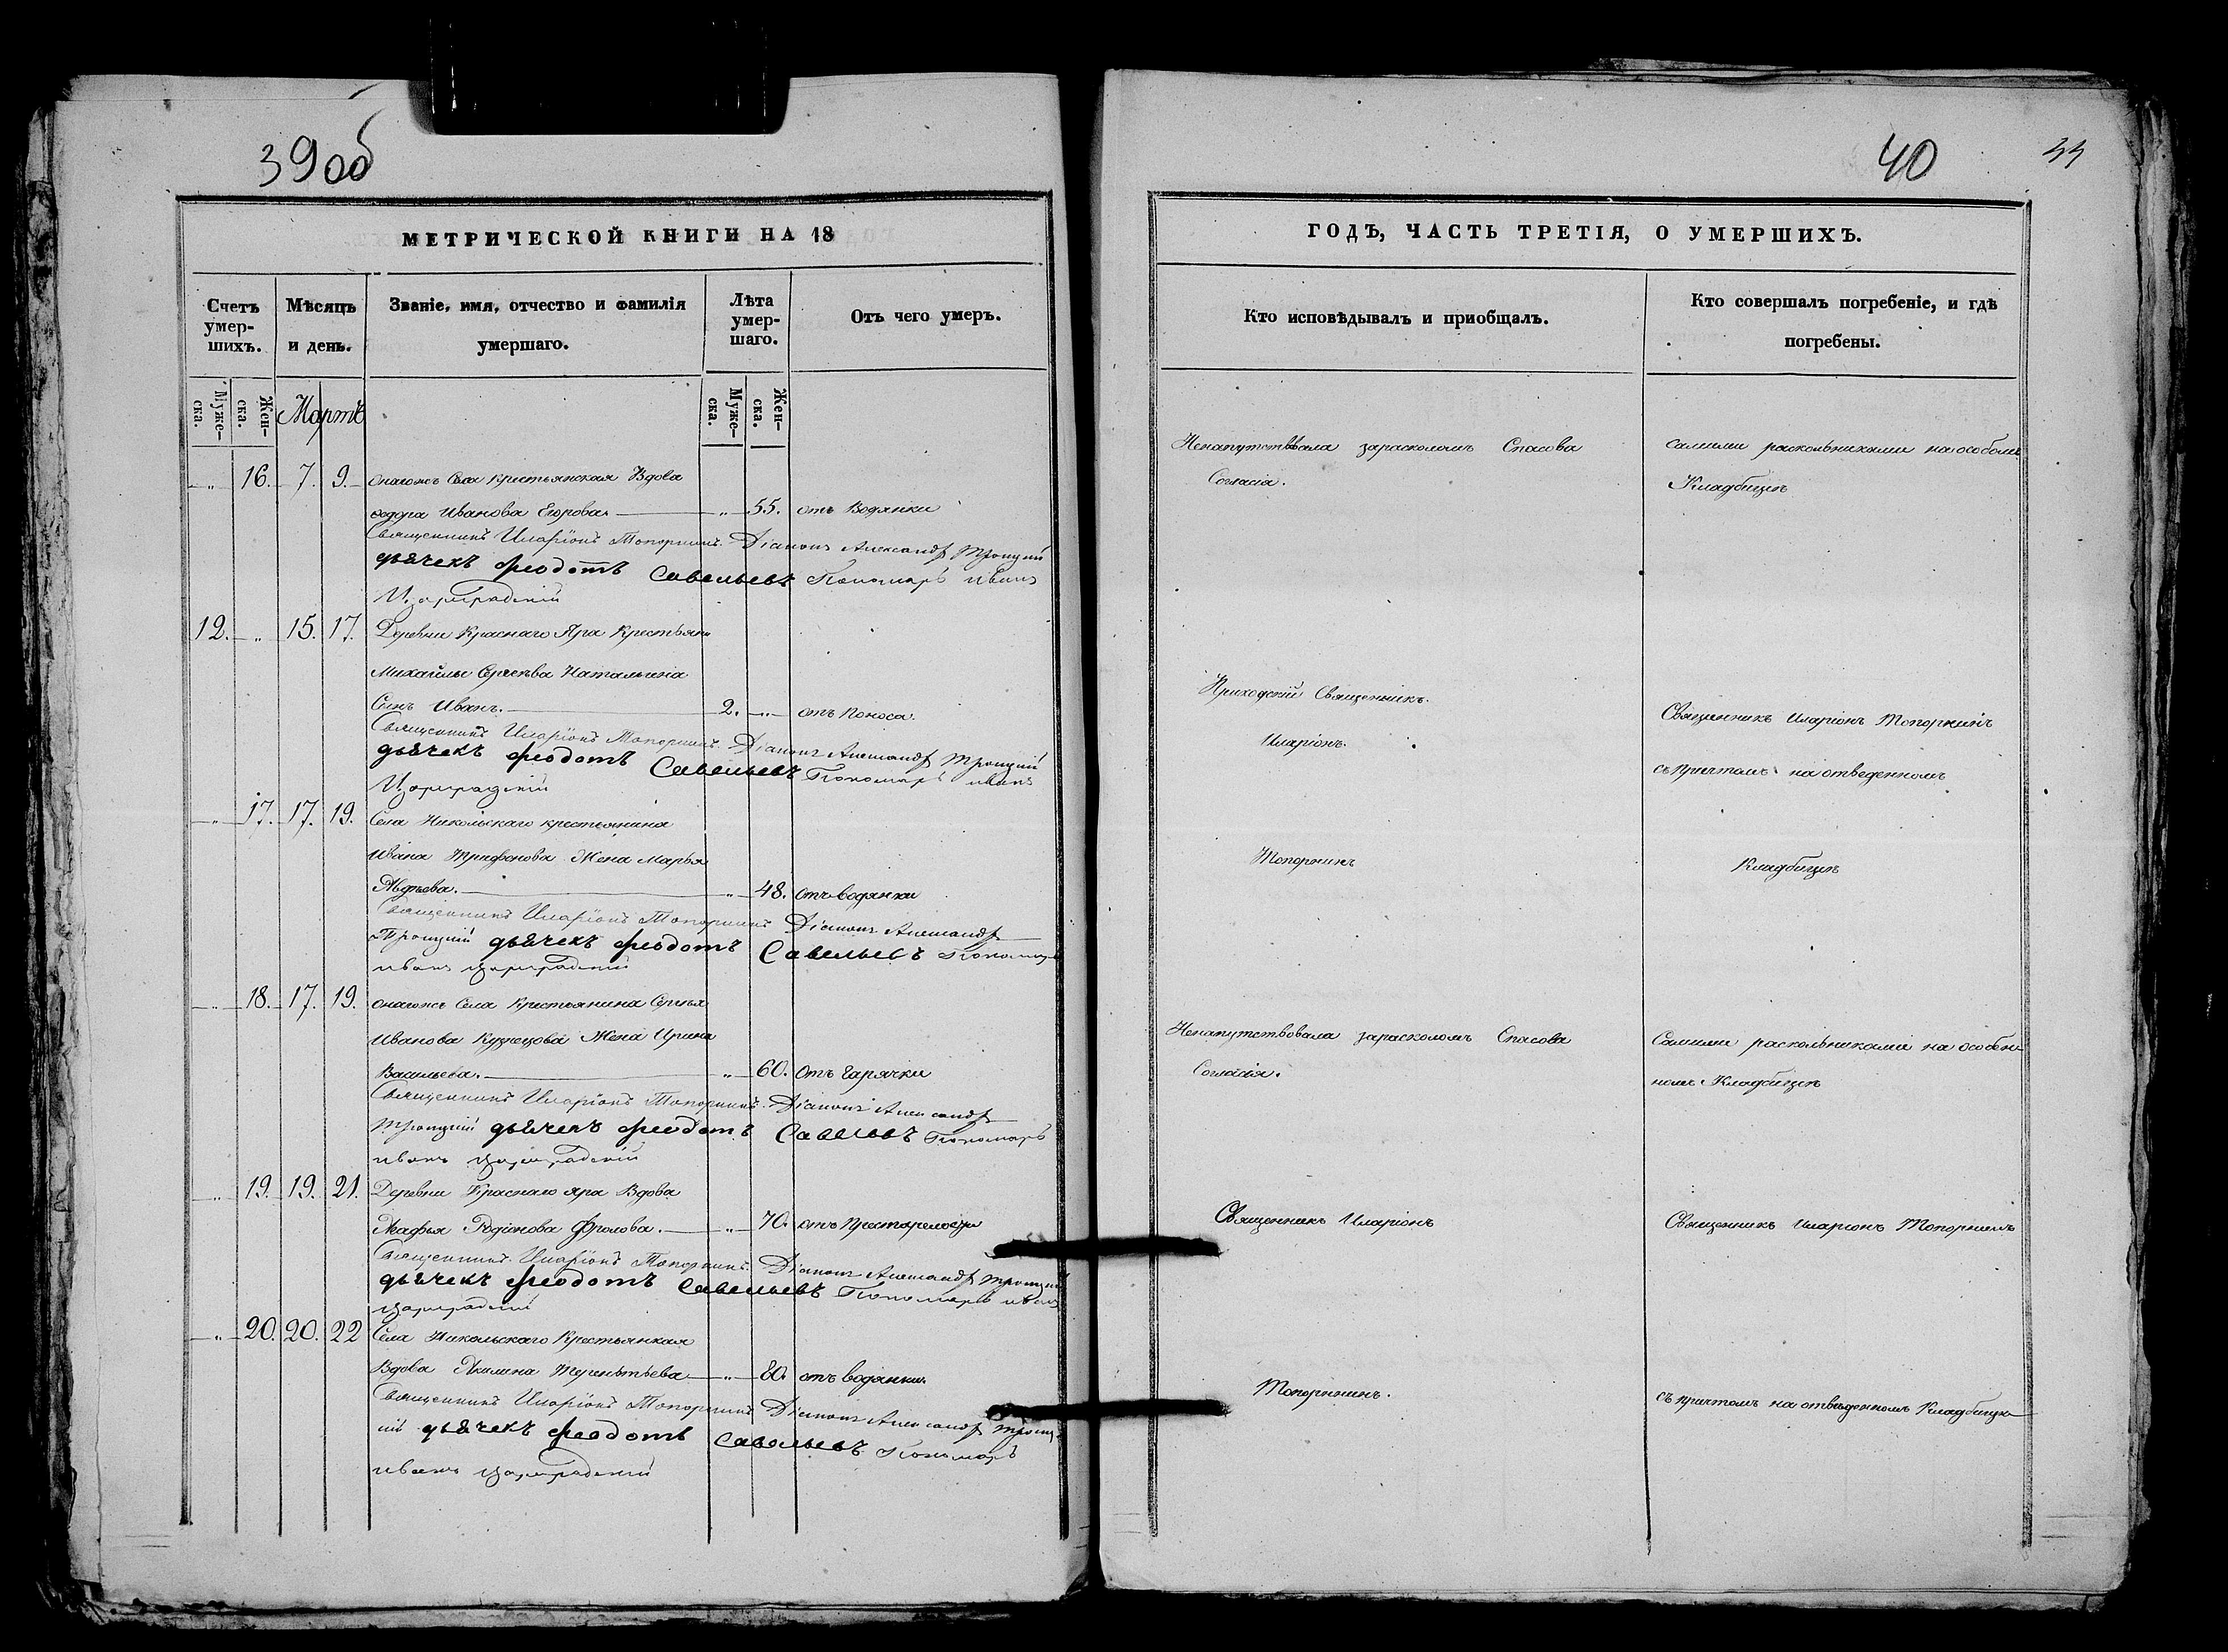 39 об
МЕТРИЧЕСКОЙ КНИГИ НА 18
Счетъ умер-шихъ.
Мѣсяцъ и день.
Званіе, имя, отчество и фамилія умершаго.
Лѣта умер-шаго.
Отъ чего умеръ.
Муже-ска.
Жен-ска.
Мартъ
Муже-ска.
Жен-ска.
„ 16. 7. 9. Онагожъ Села крестьянская Вдова
Федора Иванова Егорова. „ 55. отъ Водянки
Священникъ Иларіонъ Топорнинъ. Діаконъ Александръ Троицкій
дьячекъ Феодотъ Савельевъ Пономарь Иванъ
Цареградскій
12. „ 15. 17. Деревни Краснаго Яра Крестьяни
Михайлы Сергеева Наталина
Сынъ Иванъ. 2. „ отъ Поноса.
Священникъ Иларіонъ Топорнинъ. Діаконъ Александръ Троицкій
дьячекъ Феодотъ Савельевъ Пономарь Иванъ
Цареградскій
„ 17. 17. 19. Села Никольскаго крестьянина
Ивана Трифонова Жена Марья
Авдѣева. „ 48. Отъ водянки
Священникъ Иларіонъ Топорнинъ Діаконъ Александръ
Троицкій дьячекъ Феодотъ Савельевъ Пономарь
Иванъ Цареградскій
„ 18. 17. 19. Онагожъ Села Крестьянина Сергѣя
Иванова Кузнецова Жена Ирина
Васильева. „ 60. Отъ Гарячки
Священникъ Иларіонъ Топорнинъ. Діаконъ Александръ
Троицкій дьячекъ Феодотъ Савельевъ Пономарь
Иванъ Цареградскій
„ 19. 19. 21. Деревни Краснаго Яра Вдова
Агафья Родіонова Фролова. „ 70. отъ Престарелости
Священникъ Иларіонъ Топорнинъ. Діаконъ Александръ Троицкій
дьячекъ Феодотъ Савельевъ Пономарь Иванъ
Цареградскій
„ 20. 20. 22 Села Никольскаго Крестьянкая
Вдова Акилина Терентьева „ 80. отъ водянки.
Священникъ Иларіонъ Топорнинъ Діаконъ Александръ Троиц-
кій дьячекъ Феодотъ Савельевъ Пономарь
Иванъ Цареградскій
40
ГОДЪ, ЧАСТЬ ТРЕТІЯ, О УМЕРШИХЪ.
Кто исповѣдывалъ и приобщалъ.
Кто совершалъ погребеніе, и гдѣ
погребены.
Ненапутствовала зарасколомъ Спасова
Согласія.
Самими раскольниками на особомъ
Кладбищѣ
Приходскій Священникъ.
Иларіонъ.
Священникъ Иларіонъ Топорнинъ
съ причтомъ на отведенномъ
Топорнинъ
Кладбищѣ
Ненапутствовала зарасколомъ Спасова
Согласія.
Самими раскольниками на особен-
номъ Кладбищѣ
Священникъ Иларіонъ
Священникъ Иларіонъ Топорнинъ
Топорнинъ.
съ причтомъ на отведенномъ Кладбищѣ